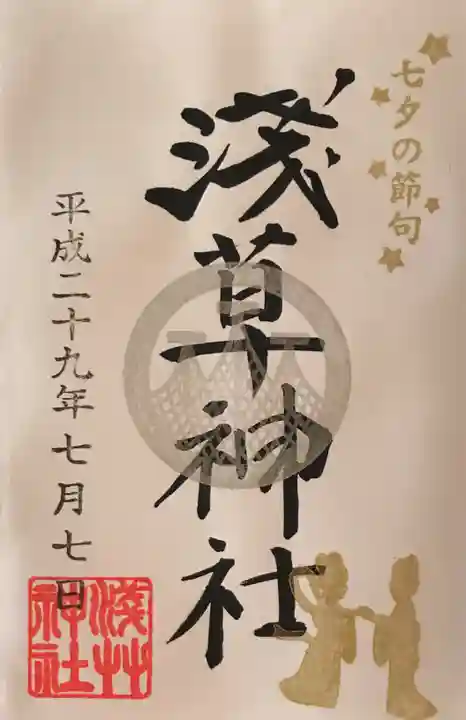 七夕の節句
淺草神社
平成二十九年七月七日
淺艸
神社